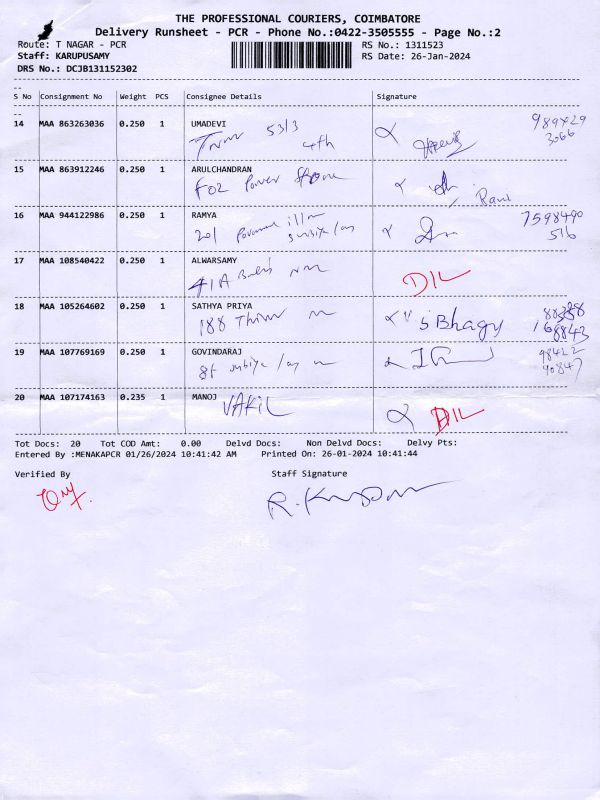 THE PROFESSIONAL COURIERS, COIMBATORE
Delivery Runsheet - PCR - Phone No.:0422-3505555 - Page No.:2
Route: T NAGAR - PCR
RS No.: 1311523
Staff: KARUPUSAMY
RS Date: 26-Jan-2024
DRS No.: DCJB131152302
S No Consignment No Weight PCS Consignee Details Signature
14 MAA 863263036 0.250 1 UMADEVI
53/3
4th
15 MAA 863912246 0.250 1 ARULCHANDRAN
F02 Power
Rani
16 MAA 944122986 0.250 1 RAMYA 7598490
201 516
17 MAA 108540422 0.250 1 ALWARSAMY
41A DIL
18 MAA 105264602 0.250 1 SATHYA PRIYA
188 S Bhagy
19 MAA 107769169 0.250 1 GOVINDARAJ
8f 98422
90847
20 MAA 107174163 0.235 1 MANOJ
VAKIL DIL
Tot Docs: 20 Tot COD Amt: 0.00 Delvd Docs: Non Delvd Docs: Delvy Pts:
Entered By :MENAKAPCR 01/26/2024 10:41:42 AM Printed On: 26-01-2024 10:41:44
Verified By Staff Signature